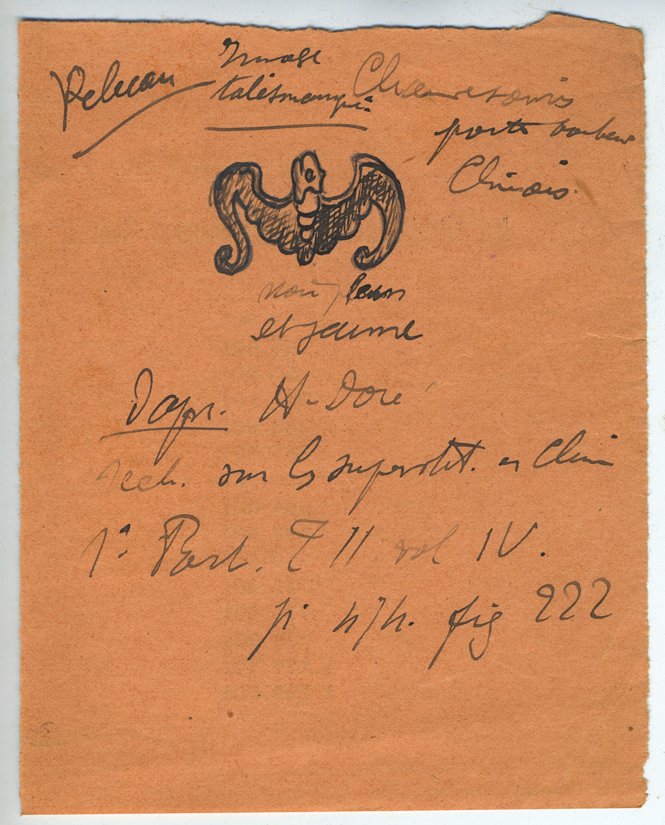 Image
talismanique
Chauvesouris
porte bonheur
Chinois.
et jaune
Dapr. H. Doré
rech. sur les superstit. en Chine
1e Part. T II vol IV.
p. 474. fig 222